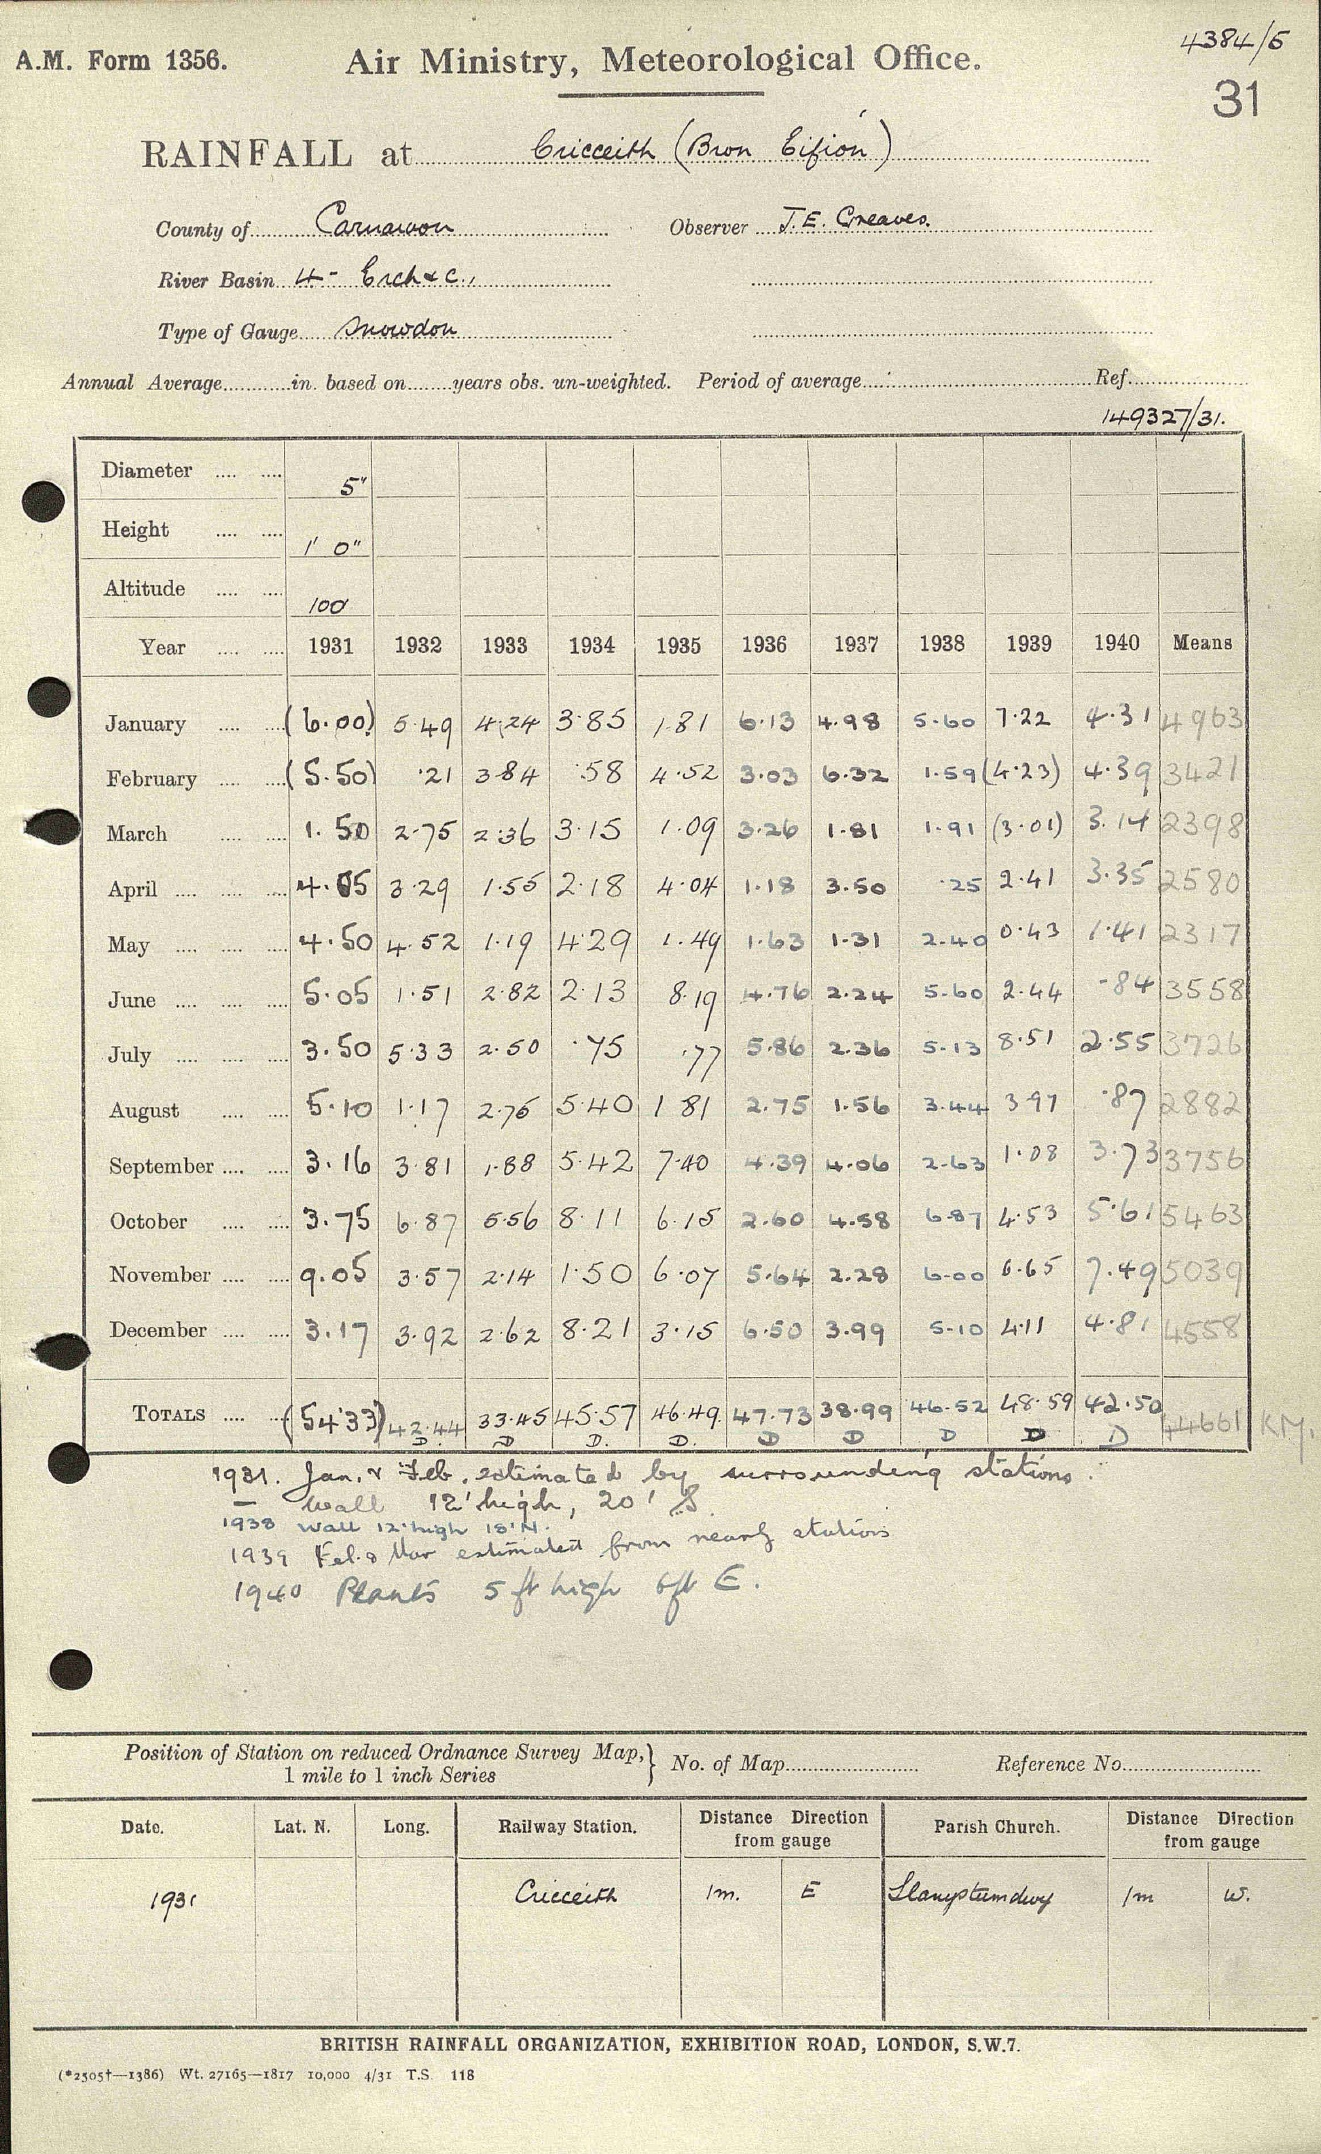 4384/5
A.M. Form 1356. Air Ministry, Meteorological Office.
31
RAINFALL at Criccieth (Bron Eifion)
County of Carnarvon Observer J.E. Greaves.
River Basin 4- Erch & c.,
Type of Gauge Snowdon
Annual Average in. based on years obs. un-weighted. Period of average Ref.
149327/31.
Diameter 5"
Height 1' 0"
Altitude 100
Year 1931 1932 1933 1934 1935 1936 1937 1938 1939 1940 Means
January (6.00) 5.49 4.24 3.85 1.81 6.13 4.98 5.60 7.22 4.31 4963
February (5.50) .21 3.84 .58 4.52 3.03 6.32 1.59 (4.23) 4.39 3421
March 1.50 2.75 2.36 3.15 1.09 3.26 1.81 1.91 (3.01) 3.14 2398
April 4.05 3.29 1.55 2.18 4.04 1.18 3.50 .25 2.41 3.35 2580
May 4.50 4.52 1.19 4.29 1.49 1.63 1.31 2.40 0.43 1.41 2317
June 5.05 1.51 2.82 2.13 8.19 4.76 2.24 5.60 2.44 .84 3558
July 3.50 5.33 2.50 .75 .77 5.86 2.36 5.13 8.51 2.55 3726
August 5.10 1.17 2.75 5.40 1.81 2.75 1.56 3.44 3.97 .87 2882
September 3.16 3.81 1.88 5.42 7.40 4.39 4.06 2.63 1.08 3.73 3756
October 3.75 6.87 5.56 8.11 6.15 2.60 4.58 6.87 4.53 5.61 5463
November 9.05 3.57 2.14 1.50 6.07 5.64 2.28 6.00 6.65 7.49 5039
December 3.17 3.92 2.62 8.21 3.15 6.50 3.99 5.10 4.11 4.81 4558
TOTALS (54.33) 42.44 33.45 45.57 46.49 47.73 38.99 46.52 48.59 42.50 44661 KM.
D. D D. D. D D D D D
1931. Jan. & Feb. estimated by surrounding stations.
— Wall 12' high, 20' S.
1938 Wall 12' high 18' N.
1939 Feb. & Mar estimated from nearby station
1940 Plants 5 ft high 6ft E.
Position of Station on reduced Ordnance Survey Map, } No. of Map Reference No.
1 mile to 1 inch Series
Date. Lat. N. Long. Railway Station. Distance Direction from gauge Parish Church. Distance Direction from gauge
1931 Criccieth 1m. E Llanystumdwy 1m W.
BRITISH RAINFALL ORGANIZATION, EXHIBITION ROAD, LONDON, S.W.7.
(*2505†—1386) Wt. 27165—1817 10,000 4/31 T.S. 118